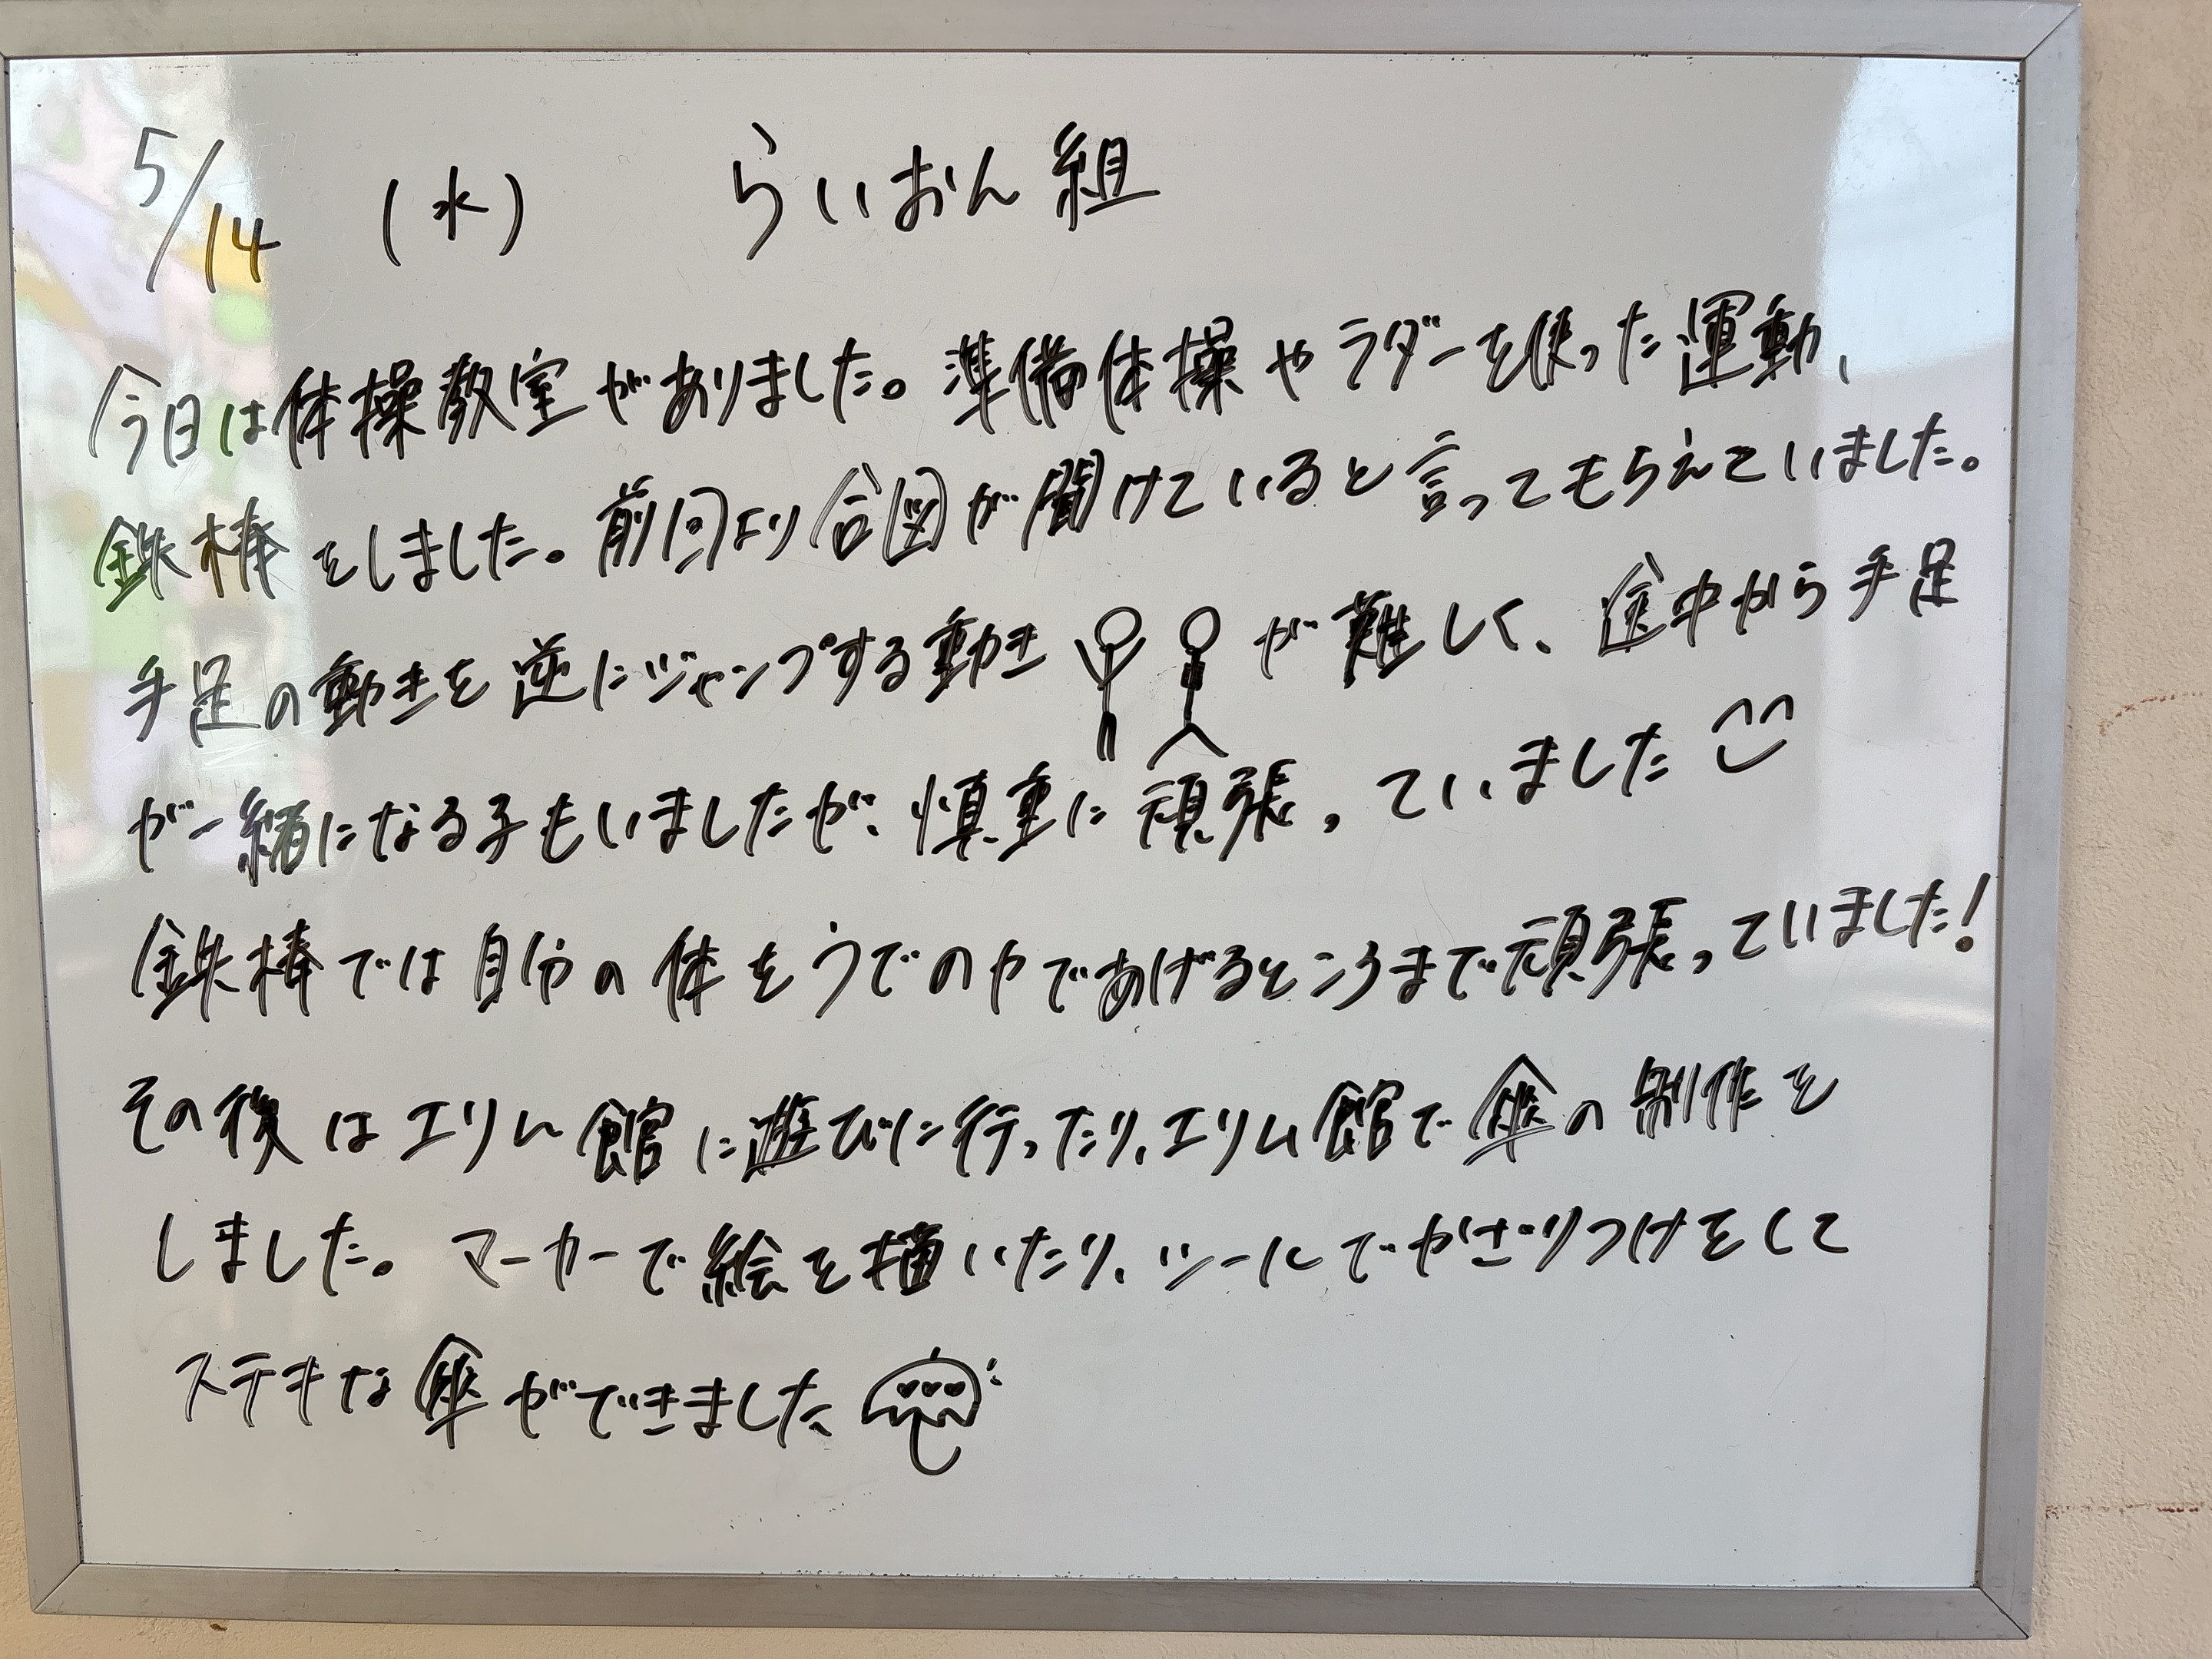 5/14 (水) らいおん組
今日は体操教室がありました。準備体操やラダーを使った運動、
鉄棒をしました。前回より合図が聞けていると言ってもらえていました。
手足の動きを逆にジャンプする動きが難しく、途中から手足
が一緒になる子もいましたが、慎重に頑張っていました
鉄棒では自分の体をうでの力であげるところまで頑張っていました!
その後はエリム館に遊びに行ったり、エリム館で傘の制作を
しました。マーカーで絵を描いたり、シールでかざりつけをして
ステキな傘ができました